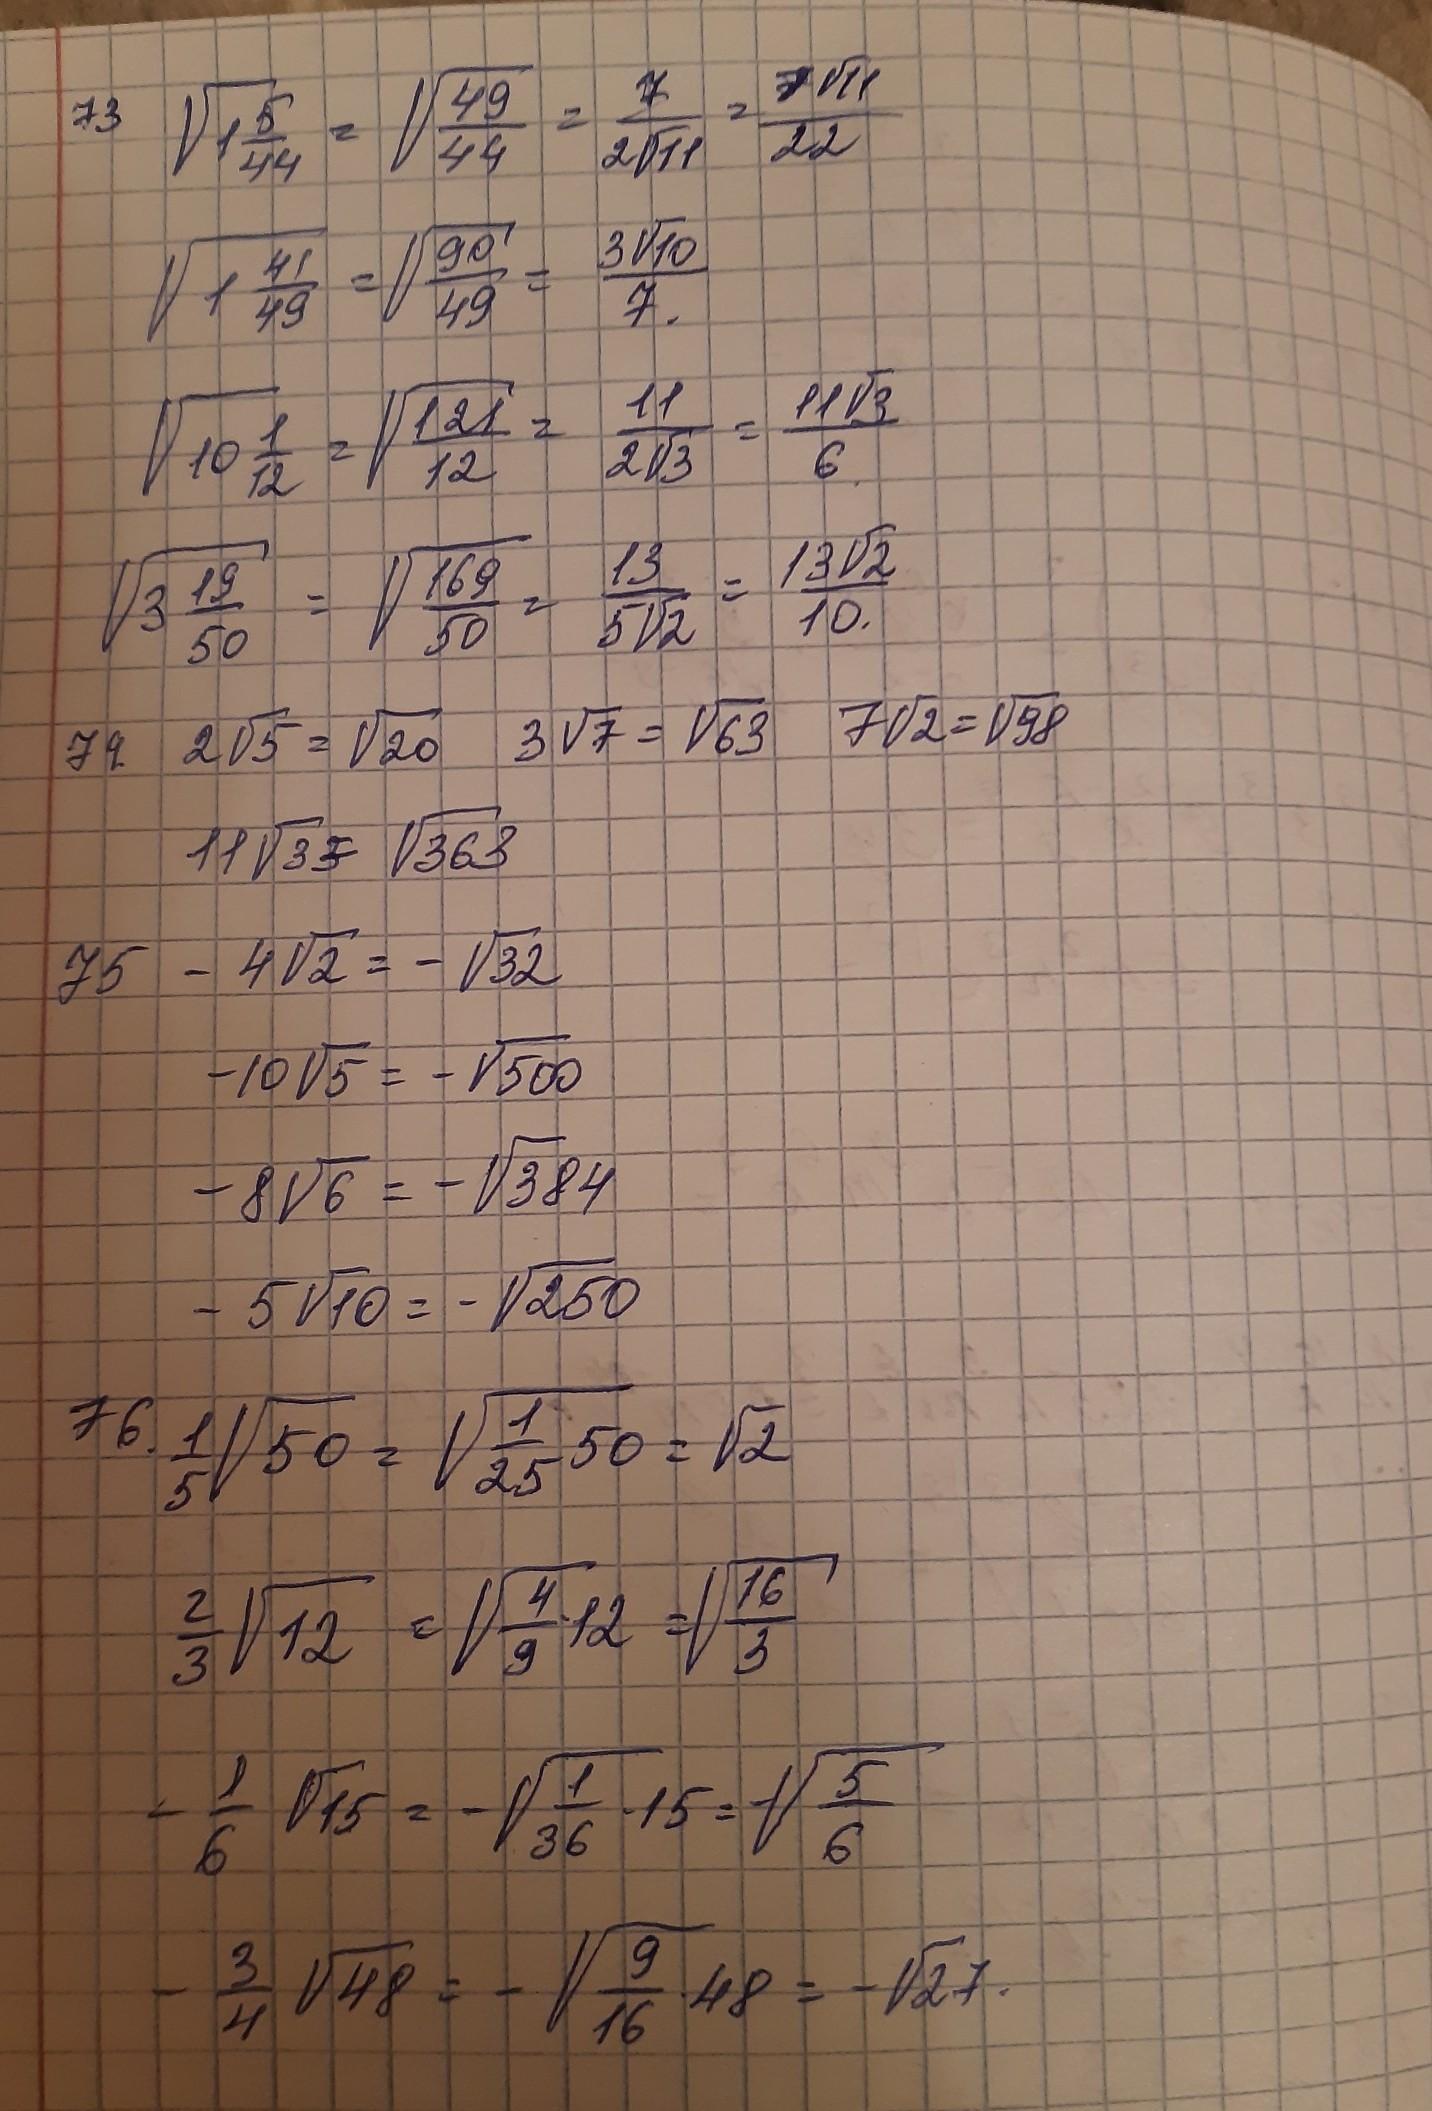 73 √(1 5/44) = √(49/44) = 7/(2√11) = 7√11/22
√(1 41/49) = √(90/49) = 3√10/7.
√(10 1/12) = √(121/12) = 11/(2√3) = 11√3/6.
√(3 19/50) = √(169/50) = 13/(5√2) = 13√2/10.
74 2√5 = √20 3√7 = √63 7√2 = √98
11√3 = √363
75 - 4√2 = - √32
-10√5 = -√500
-8√6 = -√384
- 5√10 = -√250
76. 1/5 √50 = √(1/25 50) = √2
2/3 √12 = √(4/9 · 12) = √(16/3)
- 1/6 √15 = -√(1/36 · 15) = -√(5/6)
- 3/4 √48 = - √(9/16 · 48) = - √27.